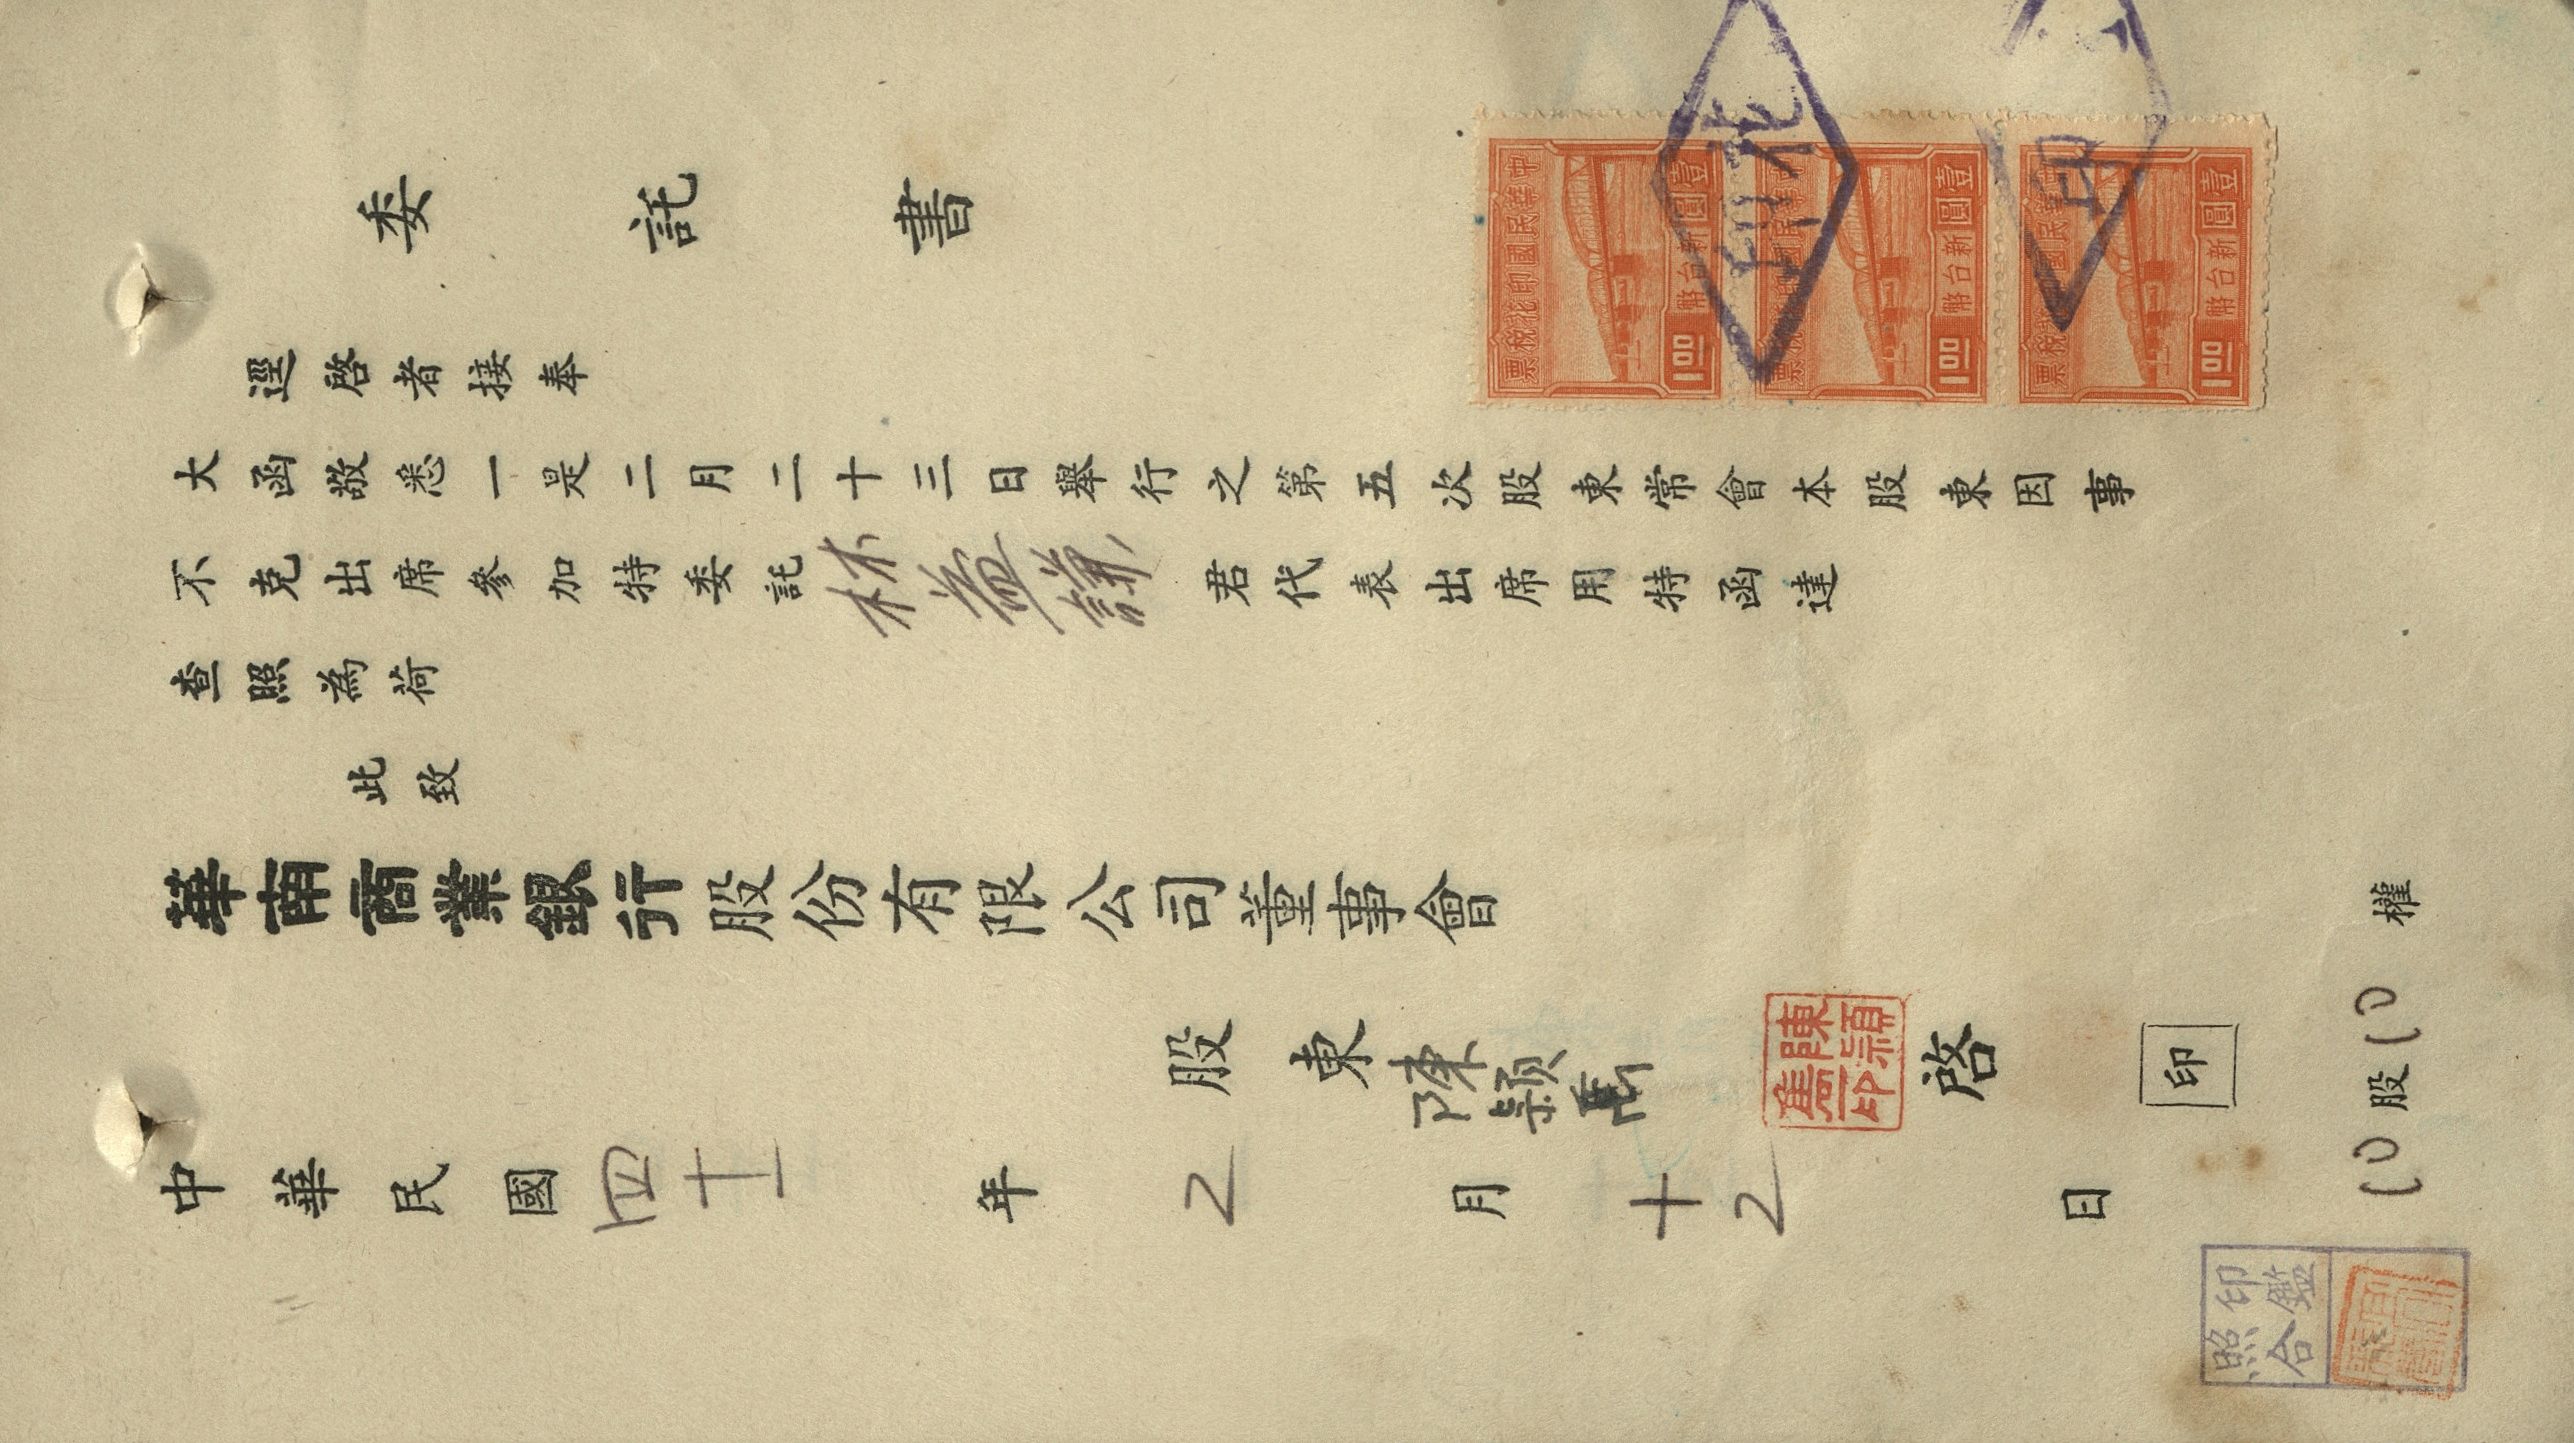 委託書
逕啓者接奉
大函敬悉一是二月二十三日舉行之第五次股東常會本股東因事
不克出席參加特委託林益謙君代表出席用特函達
查照為荷
此致
華南商業銀行股份有限公司董事會
股東陳顥嶲啓印
陳顥嶲印
中華民國四十一年2月十2日
10股10權
印鑑
照合
中華民國印花稅票
壹圓新台幣
1.00
中華民國印花稅票
壹圓新台幣
1.00
中華民國印花稅票
壹圓新台幣
1.00